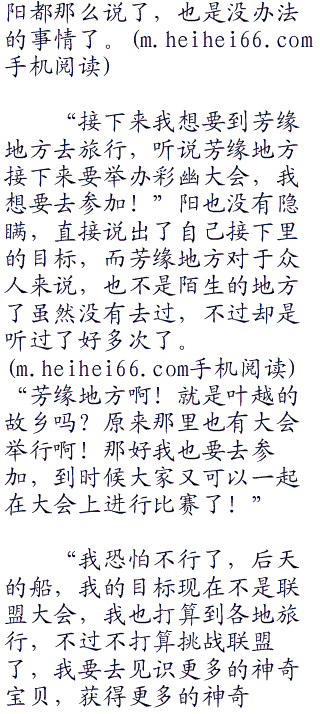 阳都那么说了，也是没办法
的事情了。(m.heihei66.com
手机阅读)
“接下来我想要到芳缘
地方去旅行，听说芳缘地方
接下来要举办彩幽大会，我
想要去参加！”阳也没有隐
瞒，直接说出了自己接下里
的目标，而芳缘地方对于众
人来说，也不是陌生的地方
了虽然没有去过，不过却是
听过了好多次了。
(m.heihei66.com手机阅读)
“芳缘地方啊！就是叶越的
故乡吗？原来那里也有大会
举行啊！那好我也要去参
加，到时候大家又可以一起
在大会上进行比赛了！”
“我恐怕不行了，后天
的船，我的目标现在不是联
盟大会，我也打算到各地旅
行，不过不打算挑战联盟
了，我要去见识更多的神奇
宝贝，获得更多的神奇